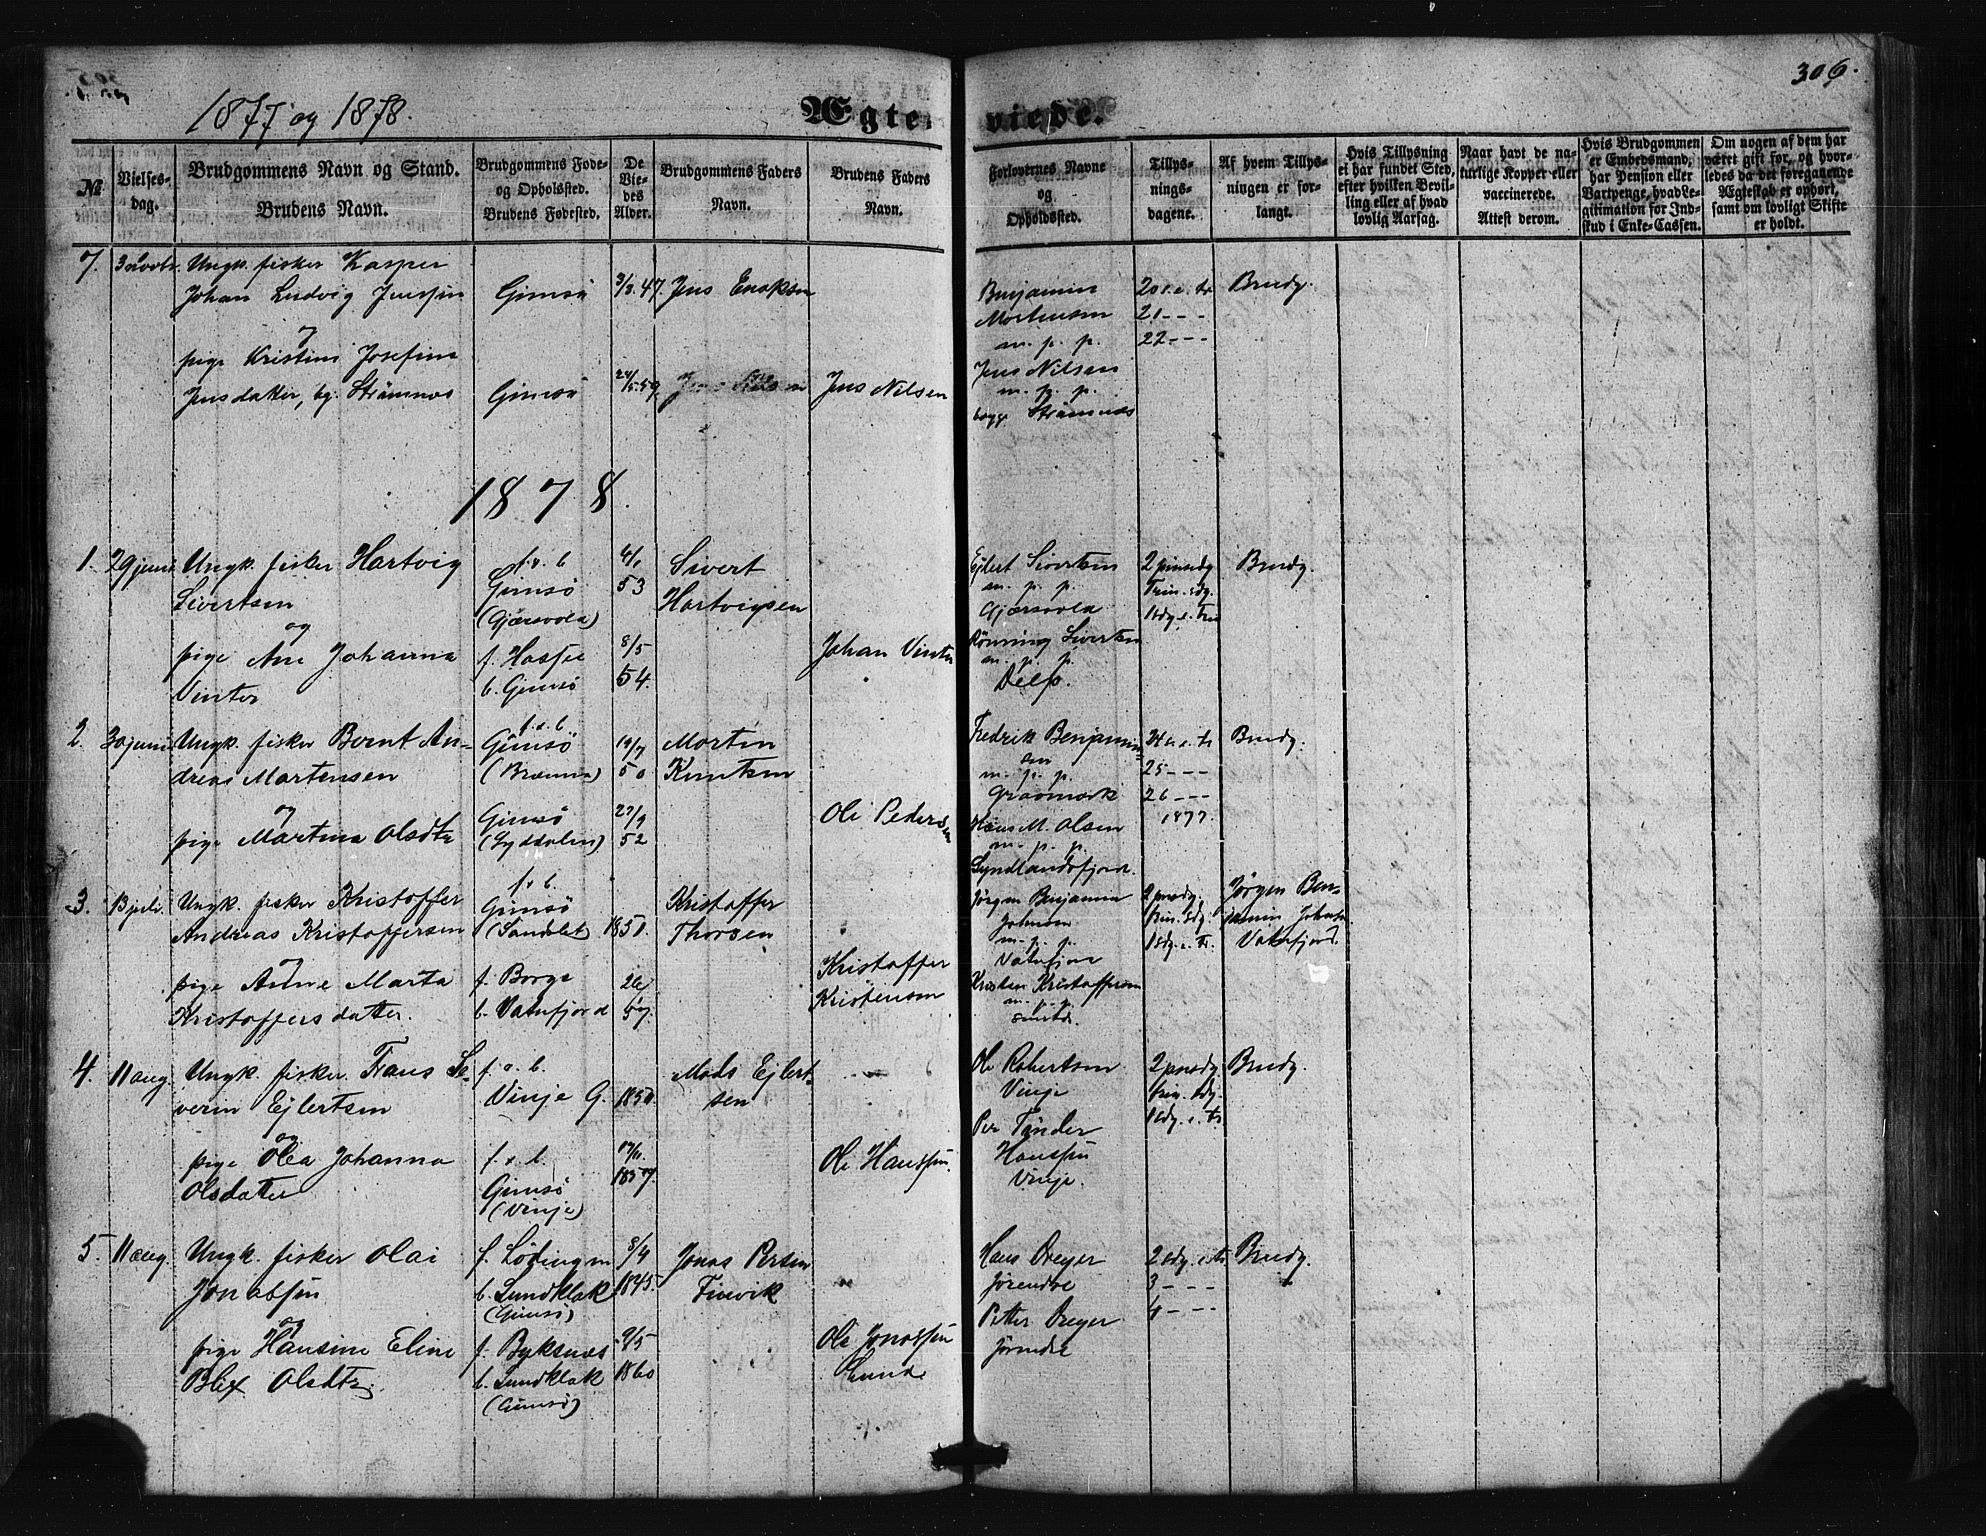 306.
1877 og 1878.
Ægte-viede.
№
Vielses-
dag.
Brudgommens Navn og Stand.
Brudens Navn.
Brudgommens Føde-
og Opholsted.
Brudens Fødested.
De
Vie-
des
Alder.
Brudgommens Faders
Navn.
Brudens Faders
Navn.
Forlovernes Navne
og
Opholdssted.
Tillys-
nings-
dagene.
Af hvem Tillys-
ningen er for-
langt.
Hvis Tillysning
ei har fundet Sted,
efter hvilken Bevil-
ling eller af hvad
lovlig Aarsag.
Naar havt de na-
turlige Kopper eller
vaccinerede.
Attest derom.
Hvis Brudgommen
er Embedsmand,
har Pension eller
Vartpenge, hvad Le-
gitimation for Ind-
skud i Enke-Cassen.
Om nogen af dem har
været gift før, og hvor-
ledes da det foregaaende
Ægteskab er ophørt,
samt om lovligt Skifte
er holdt.
7.
Ungk. fisker Kasper
Johan Ludvig Jenssen
og
pige Kristine Josefine
Jensdatter, bg. Strømnes
Gimsø
Gimsø
3/8. 47.
24/5 59.
Jens Enoksen
Jens Nilsen
Benjamin
Mortensen
m. p. p.
Jens Nilsen
m. p. p.
begge Strømnæs
20 s. e. tr
21 - - -
22 - - -
Brudg.
1878
1.
29 juni
Ungk. fisker Hartvig
Sivertsen
og
pige Ane Johanna
Vinter
f. o. b
Gimsø
(Gjærsvola)
f. Hassel
b. Gimsø
4/1
53
8/5
54.
Sivert
Hartvigsen
Johan Vinter
Ejlert Sivertsen
m. p. p.
Gjærsvola
Rønning Sivertsen
m. p. p.
Delp.
2 pinsedg
Trin. sdg.
1 sdg. e. Trin
Brudg.
2.
30 juni
Ungk. fisker Bernt An-
dreas Martensen
og
pige Martina Olsdtr
f. o. b
Gimsø
(Brænna)
Gimsø
(Lyddalen)
19/7
50
27/9
52
Morten
Knutsen
Ole Pedersen
Fredrik Benjamin-
sen
m. p. p.
Gravmark
Hans M. Olsen
m. p. p.
Syndlandsfjord.
24 s. e. tr
25 - - -
26 - - -
1877.
Brudg.
3.
13 juli.
Ungk. fisker Kristoffer
Andreas Kristoffersen
og
pige Anne Marta
Kristoffersdatter.
f. o. b.
Gimsø
(Sandslet)
f. Borge
b. Vatnfjord
1850.
57.
Kristoffer
Thorsen
Kristoffer
Kristensen
Jørgen Benjamin
Johnsen
m. p. p.
Vatnfjord
Kristen Kristoffersen
m. p. p.
smstd.
2 pinsedg.
trin. sdg.
1 sdg. e. tr.
Jørgen Ben-
jamin Johnsen
Vatnfjord.
4.
11 aug.
Ungk. fisker Frans Se-
verin Ejlertsen
og
pige Olea Johanna
Olsdatter
f. o. b.
Vinje G.
f. o. b.
Gimsø
(Vinje)
1850.
1857.
Mads Ejlert-
sen
Ole Hanssen.
Ole Robertsen
Vinje
Per Tønder
Hanssen
Vinje.
2 pinsedg.
trin. sdg.
1 sdg. e. tr
Brudg.
5.
11 aug.
Ungk. fisker Olai
Jonassen
og
pige Hansine Eline
Blix Olsdtr.
f. Lødingen
b. Sundklak
(Gimsø)
f. Byksnæs
b. Sundklak
(Gimsø)
8/4
1845.
9/5
1860
Jonas Persen
Finvik
Ole Jonassen
Lund
Hans Dreyer
Jørendøe
Petter Dreyer
Jørendøe
2 sdg. e. tr
3 - - -
4 - - -
Brudg.